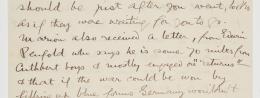 should be just after you went, looks
as if they were waiting for you to go.
Mr Arson also received a letter, from Edwin
Penfold who says he is some 70 miles from
Cuthbert boys & mostly engaged on "returns"
& that if the war could be won by
filling up blue forms Germany wouldn't